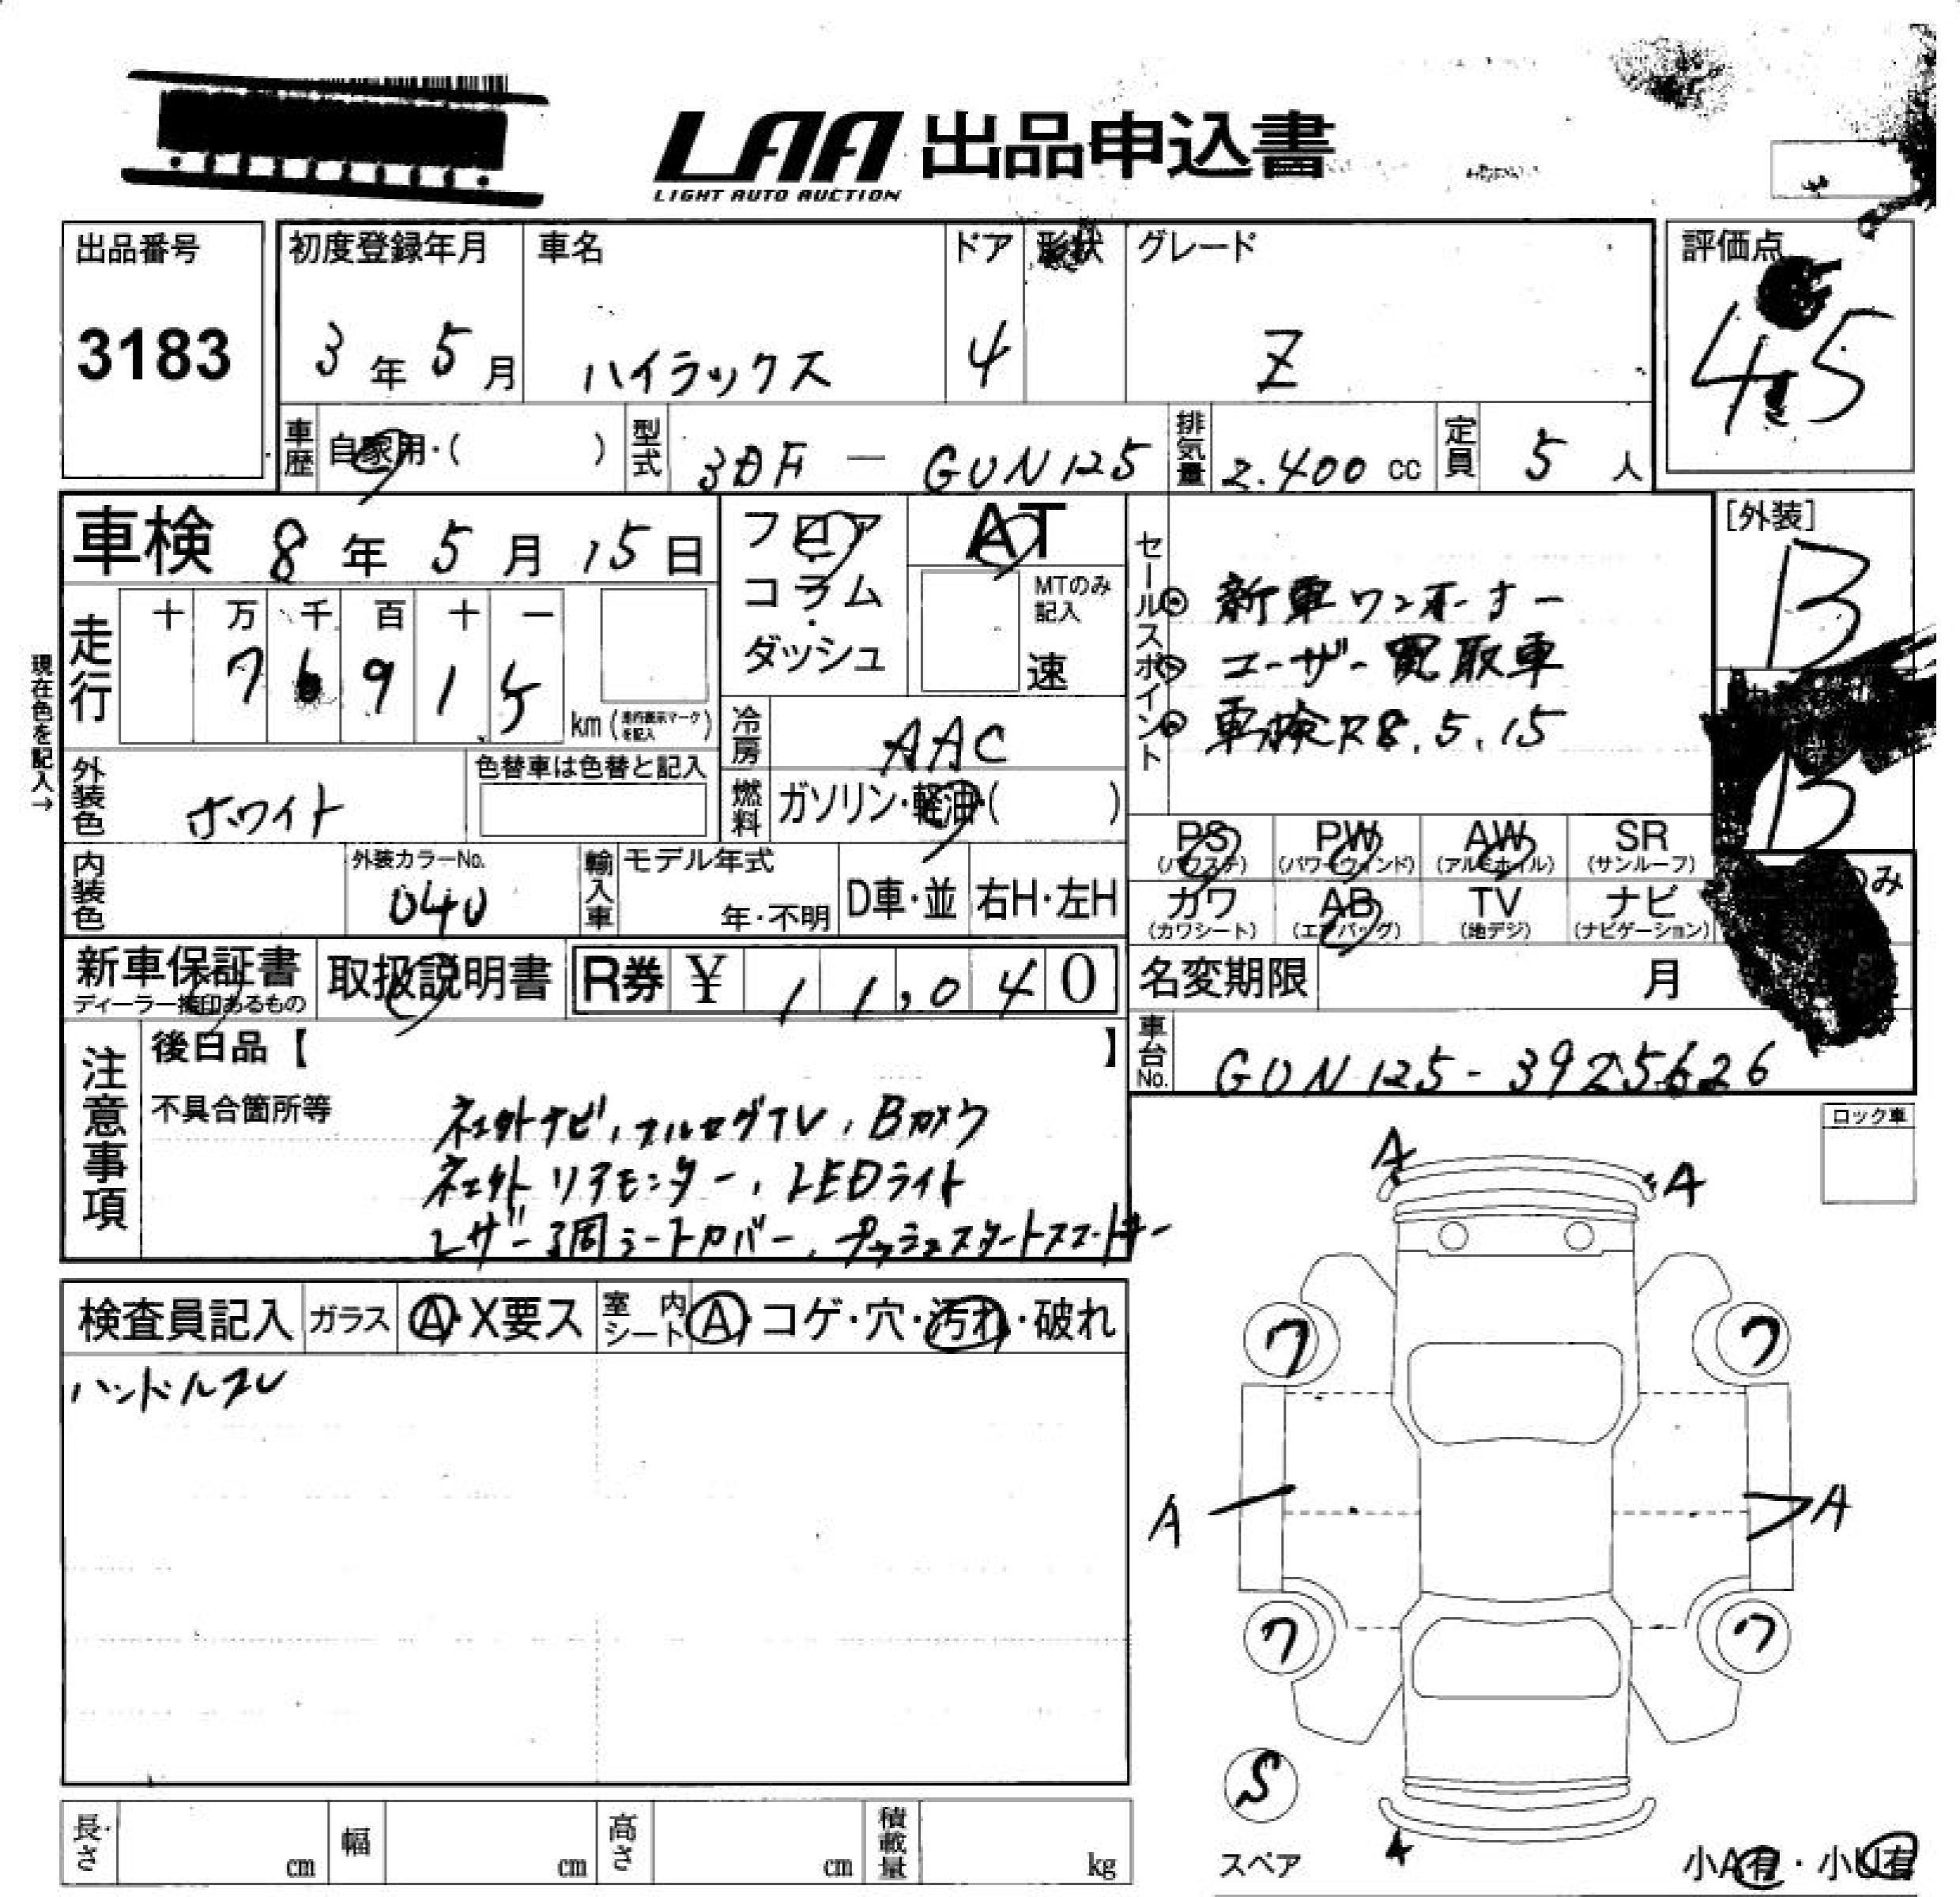 LAA 出品申込書
LIGHT AUTO AUCTION
出品番号
3183
初度登録年月
3年5月
車名
ハイラックス
ドア
4
形状
グレード
Z
評価点
4.5
車歴
自家用・( )
型式
3DF - GUN125
排気量
2.400 cc
定員
5人
車検 8年5月15日
フロア
コラム
ダッシュ
AT
MTのみ記入
速
現在色を記入→
走行
十 万 千 百 十 一
7 6 9 1 5
km (走行表示マークを記入)
冷房
AAC
燃料
ガソリン・軽油・( )
外装色
ホワイト
色替車は色替と記入
内装色
外装カラーNo.
040
輸入車
モデル年式
年・不明
D車・並
右H・左H
新車保証書
ディーラー捺印あるもの
取扱説明書
R券 ¥ 11,040
セールスポイント
◎ 新車ワンオーナー
◎ ユーザー買取車
◎ 車検R8.5.15
[外装]
B
B
のみ
PS (パワステ)
PW (パワーウィンド)
AW (アルミホイル)
SR (サンルーフ)
カワ (カワシート)
AB (エアバッグ)
TV (地デジ)
ナビ (ナビゲーション)
名変期限
月
車台No.
GUN125-3925626
注意事項
後日品【 】
不具合箇所等
社外ナビ,フルセグTV,Bカメラ
社外リアモニター,LEDライト
レザー調シートカバー,プッシュスタートスマートキー
ロック車
検査員記入
ガラス
A・X要ス
室内シート
A・コゲ・穴・汚れ・破れ
ハンドルスレ
A
A
ワ
ワ
A
A
ワ
ワ
S
スペア
A
小A有・小U有
長さ cm
幅 cm
高さ cm
積載量 kg